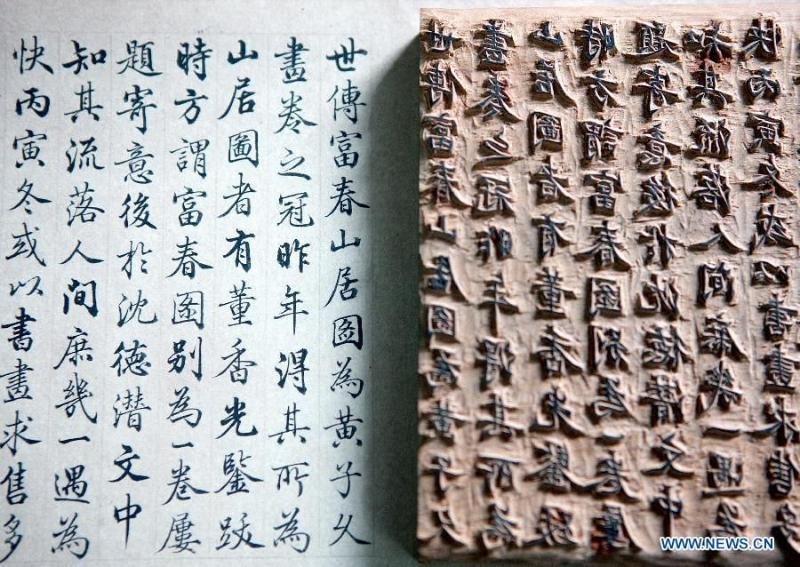 世傳富春山居图為黃子久
畫卷之冠昨年淂其所為
山居圖者有董香光鑒跋
時方謂富春图别為一卷屢
題寄意後扵沈德潛文中
知其流落人間庶幾一遇為
快丙寅冬或以書畫求售多
世傳富春山居图為黃子久
畫卷之冠昨年淂其所為
山居圖者有董香光鑒跋
時方謂富春图别為一卷屢
題寄意後扵沈德潛文中
知其流落人間庶幾一遇為
快丙寅冬或以書畫求售多
WWW.NEWS.CN